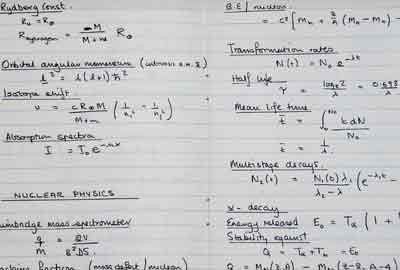 Rydberg Const.
R₀ = R∞
R_hydrogen = M / M + m R∞
Orbital angular momentum
l² = l(l+1) ħ²
Isotope shift.
ν = c R∞ M / M + m ( 1/n₁² − 1/n₂² )
Absorption spectra
I = I₀ e^-μx
NUCLEAR PHYSICS
mass spectrometer
q / m = 8V / B² D S
fraction (mass defect / nucleon)
B.E / nucleon
= c² [ Mₙ + Z/A (Mₕ − Mₙ) −
Transformation rates
N(t) = N₀ e^-λt
Half life
τ = logₑ2 / λ = 0.693 / λ
Mean life time
t̄ = ∫₀^N₀ t dN / N₀
t̄ = 1/λ
Multistage decays.
N₂(t) = N₁(0) λ₁ / λ₂ − λ₁ ( e^-λ₁t −
α - decay
Energy released E₀ = Tα ( 1 +
Stability against
Q = Tα + T = E₀
Q = M (Z,A) − M (Z-2, A-4)